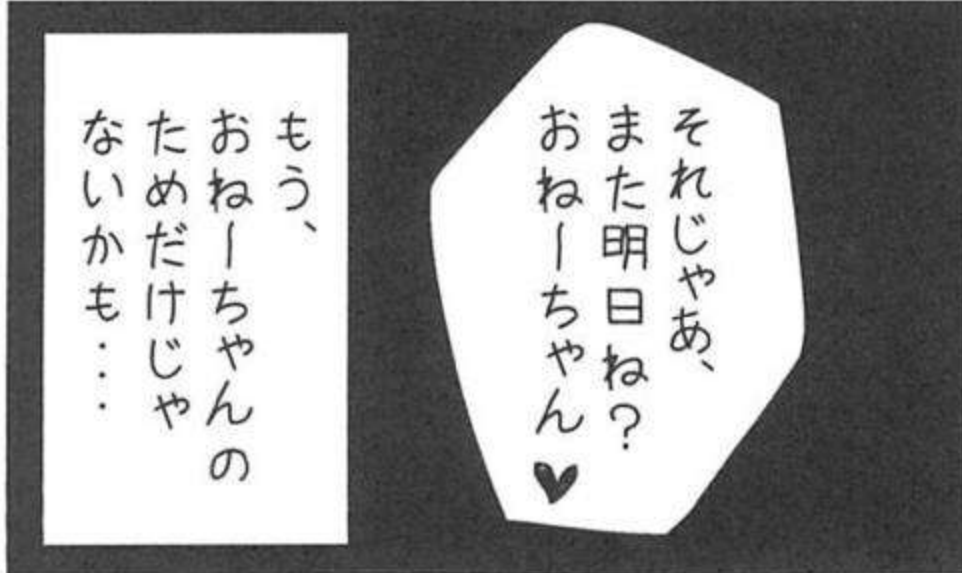 それじゃあ、
また明日ね?
おねーちゃん♥
もう、
おねーちゃんの
ためだけじゃ
ないかも・・・